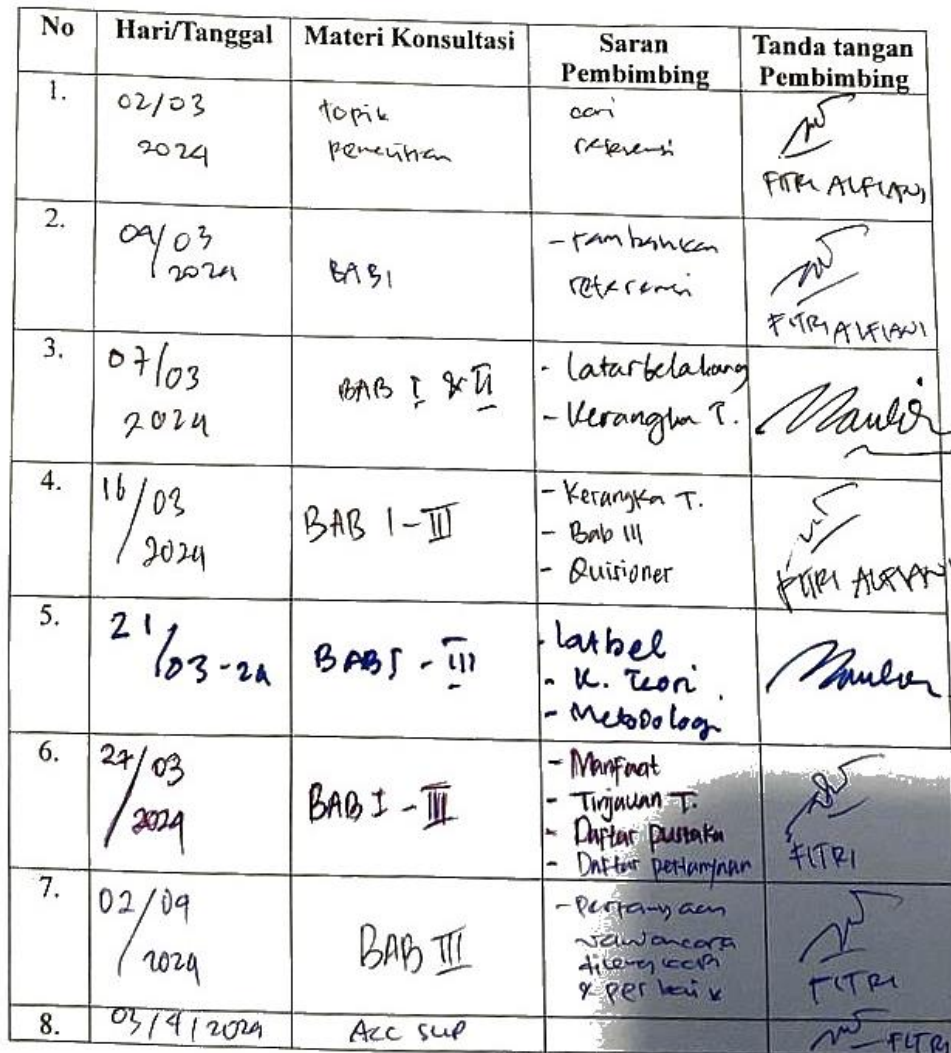 No Hari/Tanggal Materi Konsultasi Saran Pembimbing Tanda tangan Pembimbing
1. 02/03 2024 topik penelitian cari referensi FITRI ALFIANI
2. 09/03 2024 BAB I - tambahkan referensi FITRI ALFIANI
3. 07/03 2024 BAB I & II - Latar belakang
- Kerangka T.
4. 16/03 2024 BAB I - III - Kerangka T.
- Bab III
- Quisioner
FITRI ALFIANI
5. 21/03-24 BAB I - III - Latbel
- K. Teori
- Metodologi
6. 27/03 2024 BAB I - III - Manfaat
- Tinjauan T.
- Daftar pustaka
- Daftar pertanyaan
FITRI
7. 02/04 2024 BAB III - Pertanyaan
wawancara
dilengkapi
& perbaik
FITRI
8. 03/4/2024 Acc sup FITRI